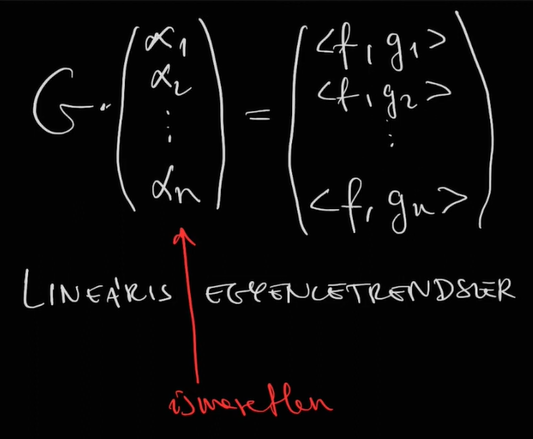 G · (α₁ α₂ ⋮ αₙ) = (<f, g₁> <f, g₂> ⋮ <f, gₙ>)
LINEÁRIS EGYENLETRENDSZER
ismeretlen